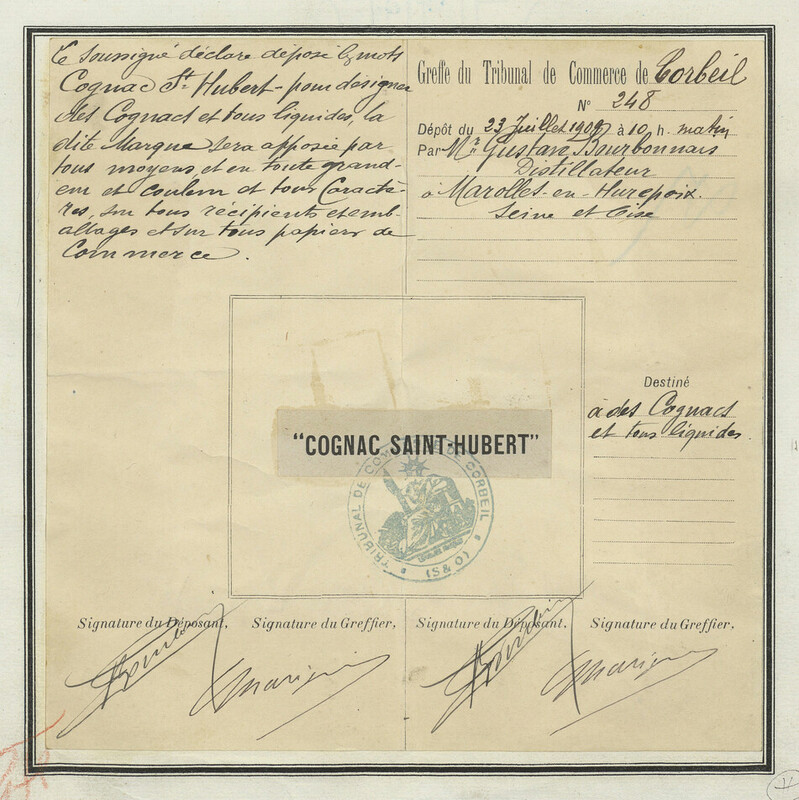 Le soussigné déclare déposé les mots
Cognac St Hubert - pour désigner
des Cognacs et tous liquides, la
dite Marque sera apposée par
tous moyens, et en toute grand-
eur et couleur et tous Caractè-
res, sur tous récipients et emb-
allages et sur tous papiers de
Commerce.
Greffe du Tribunal de Commerce de Corbeil
N° 248
Dépôt du 23 Juillet 1909 à 10 h. matin
Par Mr Gustave Bourbonnais
Distillateur
à Marolles-en-Hurepoix.
Seine et Oise
Destiné
à des Cognacs
et tous liquides.
"COGNAC SAINT-HUBERT"
TRIBUNAL DE COMMERCE DE CORBEIL
(S & O)
Signature du Déposant, Signature du Greffier, Signature du Déposant, Signature du Greffier,